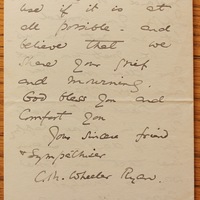 use if it is at
all possible. and
believe that we
share your grief
and mourning.
God bless you and
Comfort you
Your sincere friend
& Sympathiser
C. M. Wheeler Ryan.